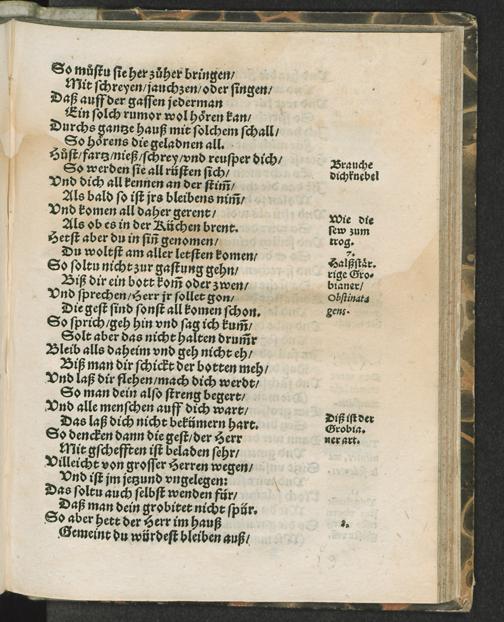 So muͤstu sie her zuͤher bringen/
Mit schreyen/jauchzen/oder singen/
Daß auff der gassen jederman
Ein solch rumor wol hoͤren kan/
Durchs gantze hauß mit solchem schall/
So hoͤrens die geladnen all.
Huͤst/fartz/nieß/schrey/vnd reusper dich/
So werden sie all ruͤsten sich/
Vnd dich all kennen an der stim̄/
Als bald so ist jrs bleibens nim̄/
Vnd komen all daher gerent/
Als ob es in der Kuͤchen brent.
Hetst aber du in sin̄ genomen/
Du woltst am aller letsten komen/
So soltu nicht zur gastung gehn/
Biß dir ein bott kom̄ oder zwen/
Vnd sprechen/Herr jr sollet gon/
Die gest sind sonst all komen schon.
So sprich/geh hin vnd sag ich kum̄/
Solt aber das nicht halten drum̄
Bleib alls daheim vnd geh nicht eh/
Biß man dir schickt der botten meh/
Vnd laß dir flehen/mach dich werdt/
So man dein also streng begert/
Vnd alle menschen auff dich wart/
Das laß dich nicht bekuͤmern hart.
So dencken dann die gest/der Herr
Mit gschefften ist beladen sehr/
Villeicht von grosser Herren wegen/
Vnd ist jm jetzund vngelegen:
Das soltu auch selbst wenden fuͤr/
Daß man dein grobitet nicht spuͤr.
So aber hett der Herr im hauß
Gemeint du wuͤrdest bleiben auß/
Brauche
dich knebel
Wie die
sew zum
trog.
7.
Halßstär-
rige Gro-
bianer/
Obstinata
gens.
Diß ist der
Grobia-
ner art.
8.